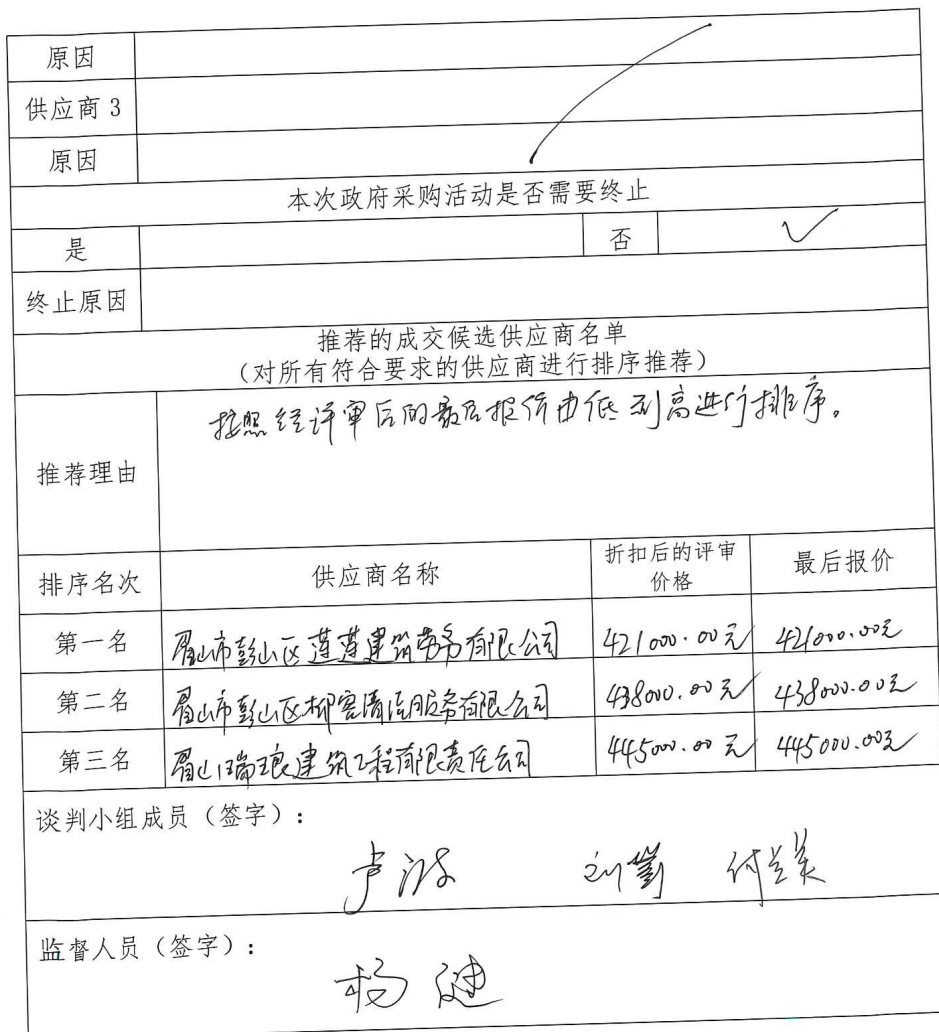 原因
供应商 3
原因
本次政府采购活动是否需要终止
是 否 ✓
终止原因
推荐的成交候选供应商名单
（对所有符合要求的供应商进行排序推荐）
推荐理由 按照经评审后的最后报价由低到高进行排序。
排序名次 供应商名称 折扣后的评审价格 最后报价
第一名 眉山市彭山区莲莲建筑劳务有限公司 421000.00元 421000.00元
第二名 眉山市彭山区柳客清洁服务有限公司 438000.00元 438000.00元
第三名 眉山瑞琅建筑工程有限责任公司 445000.00元 445000.00元
谈判小组成员（签字）：
卢波
监督人员（签字）：
杨